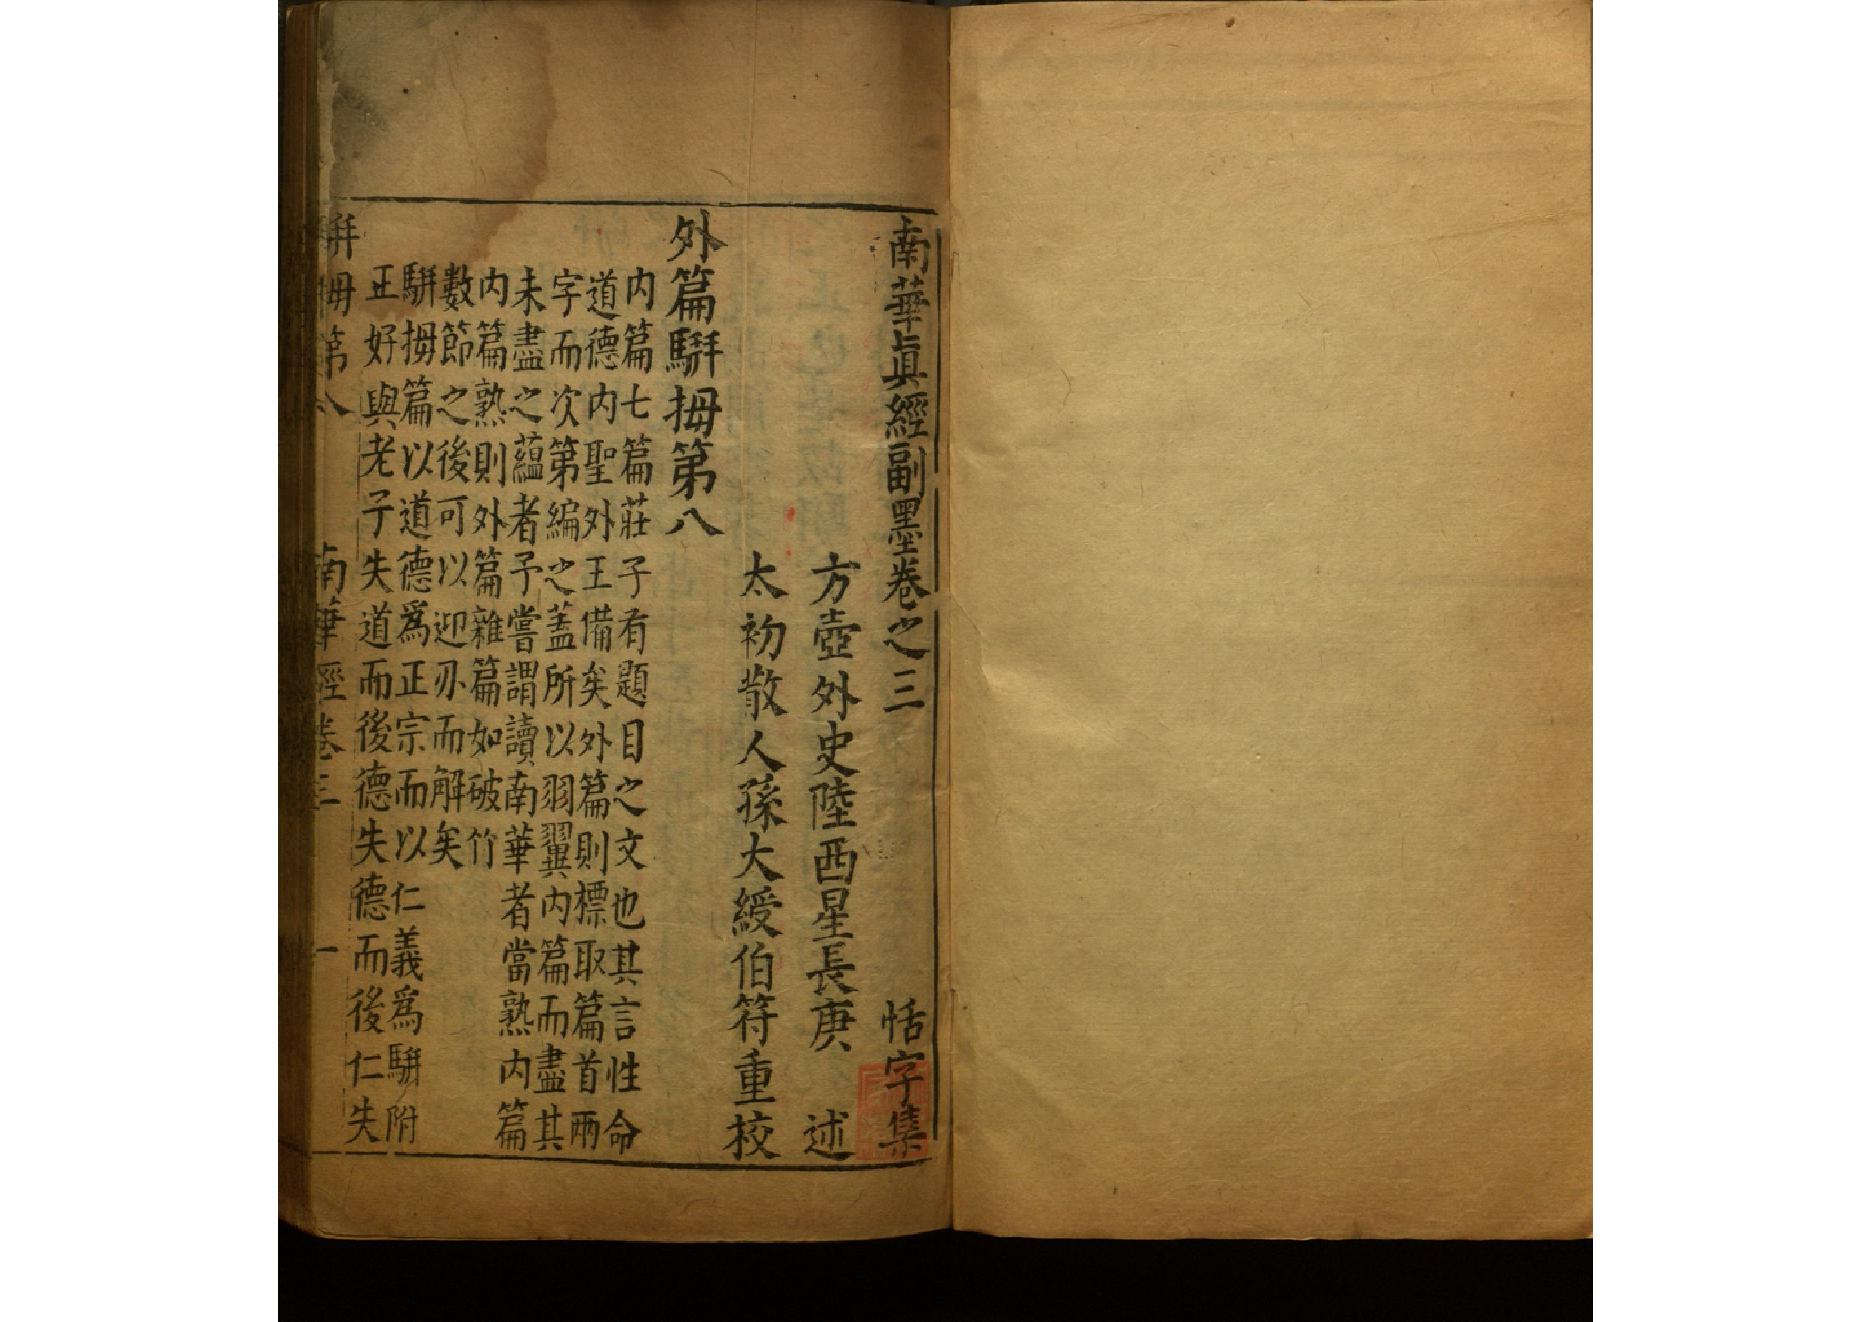 南華眞經副墨卷之三 恬字集
方壺外史陸西星長庚 述
太初散人孫大綬伯符重校
外篇騈拇第八
内篇七篇莊子有題目之文也其言性命
道德内聖外王備矣外篇則標取篇首兩
字而次第編之蓋所以羽翼内篇而盡其
未盡之蘊者予嘗謂讀南華者當熟内篇
内篇熟則外篇雜篇如破竹
數節之後可以迎刃而解矣
騈拇篇以道德爲正宗而以仁義爲騈附
正好與老子失道而後德失德而後仁失
騈拇第八 南華經卷三 一